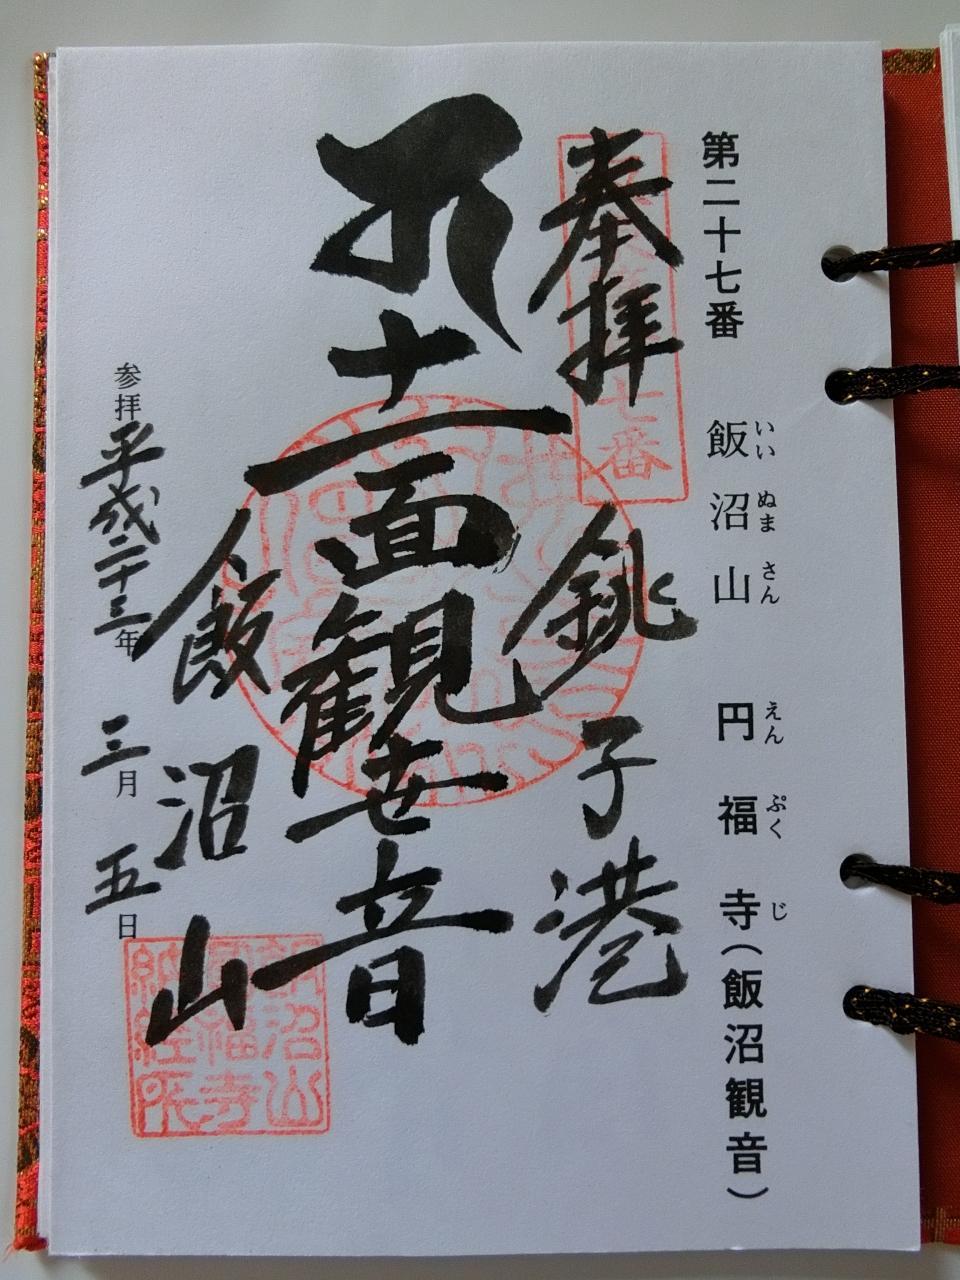 第二十七番 飯沼山 円福寺(飯沼観音)
いい ぬま さん えん ぷく じ
奉拝
七番
銚子港
十一面観世音
飯沼山
参拝 平成二十三年 三月 五日
飯沼山
円福寺
納経所